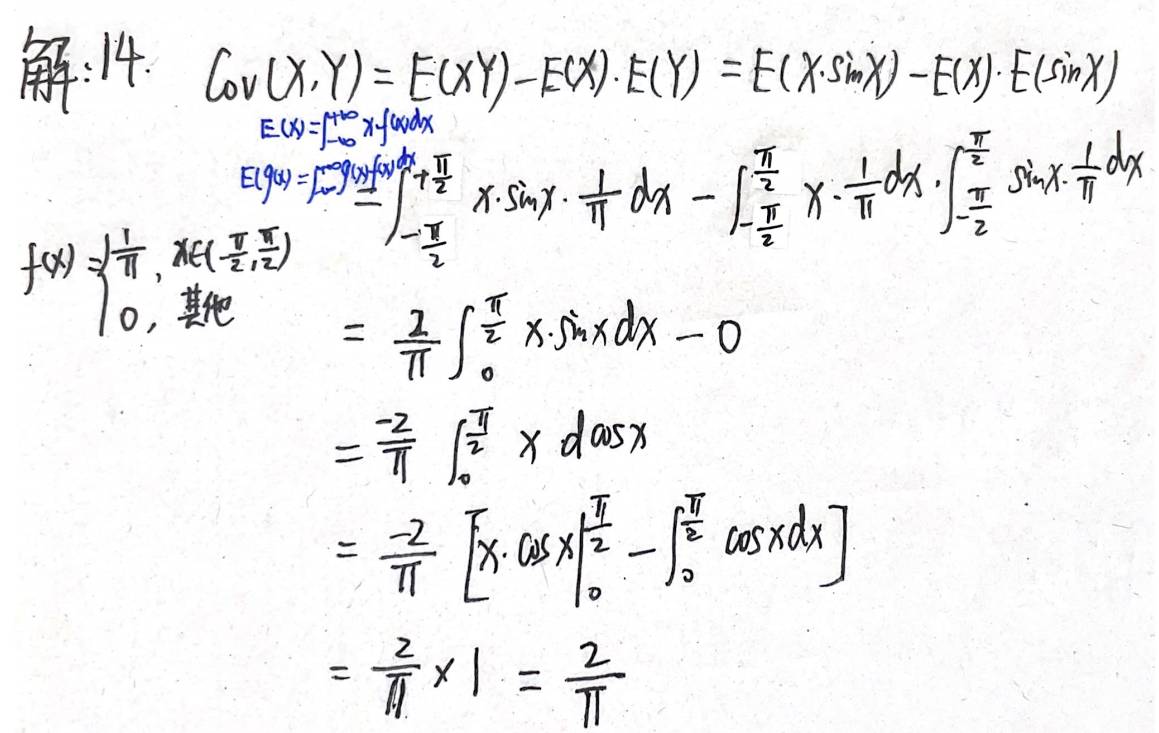 解:14. Cov(X,Y) = E(XY) - E(X)·E(Y) = E(X·sinX) - E(X)·E(sinX)
E(X)=∫_{-∞}^{+∞} x·f(x)dx
E(g(x))=∫_{-∞}^{+∞} g(x)·f(x)dx
= ∫_{-π/2}^{+π/2} x·sinx·1/π dx - ∫_{-π/2}^{π/2} x·1/π dx·∫_{-π/2}^{π/2} sinx·1/π dx
f(x) = { 1/π, x∈(-π/2, π/2)
0, 其他
= 2/π ∫_0^{π/2} x·sinx dx - 0
= -2/π ∫_0^{π/2} x dcosx
= -2/π [x·cosx|_0^{π/2} - ∫_0^{π/2} cosxdx]
= 2/π × 1 = 2/π